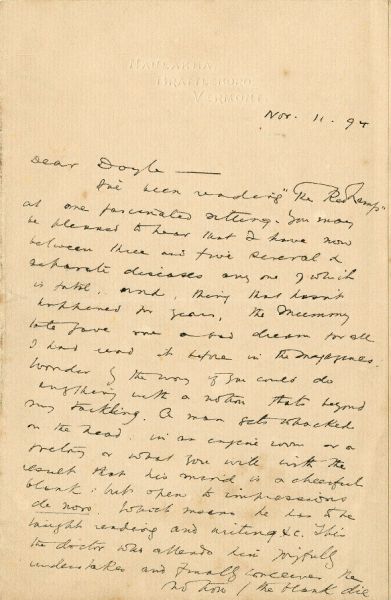 NAULAKHA
BRATTLEBORO
VERMONT
Nov. 11. 94
Dear Doyle —
I've been reading "The Red Lamp"
at one fascinated sitting. You may
be pleased to hear that I have now
between three and five several &
separate diseases any one of which
is fatal. And, thing that hasn't
happened for years, the Mummy
tale gave me a bad dream for all
I had read it before in the magazines.
Wonder if the two of you could do
anything with a notion that's beyond
my tackling. A man gets whacked
on the head in an engine room or a
or what you will with the
result that his mind is a cheerful
blank: but open to impressions
de novo. Which means he has to be
taught reading and writing &c. This
the doctor who attends him joyfully
undertakes and finally conceives the
notion / the blank die